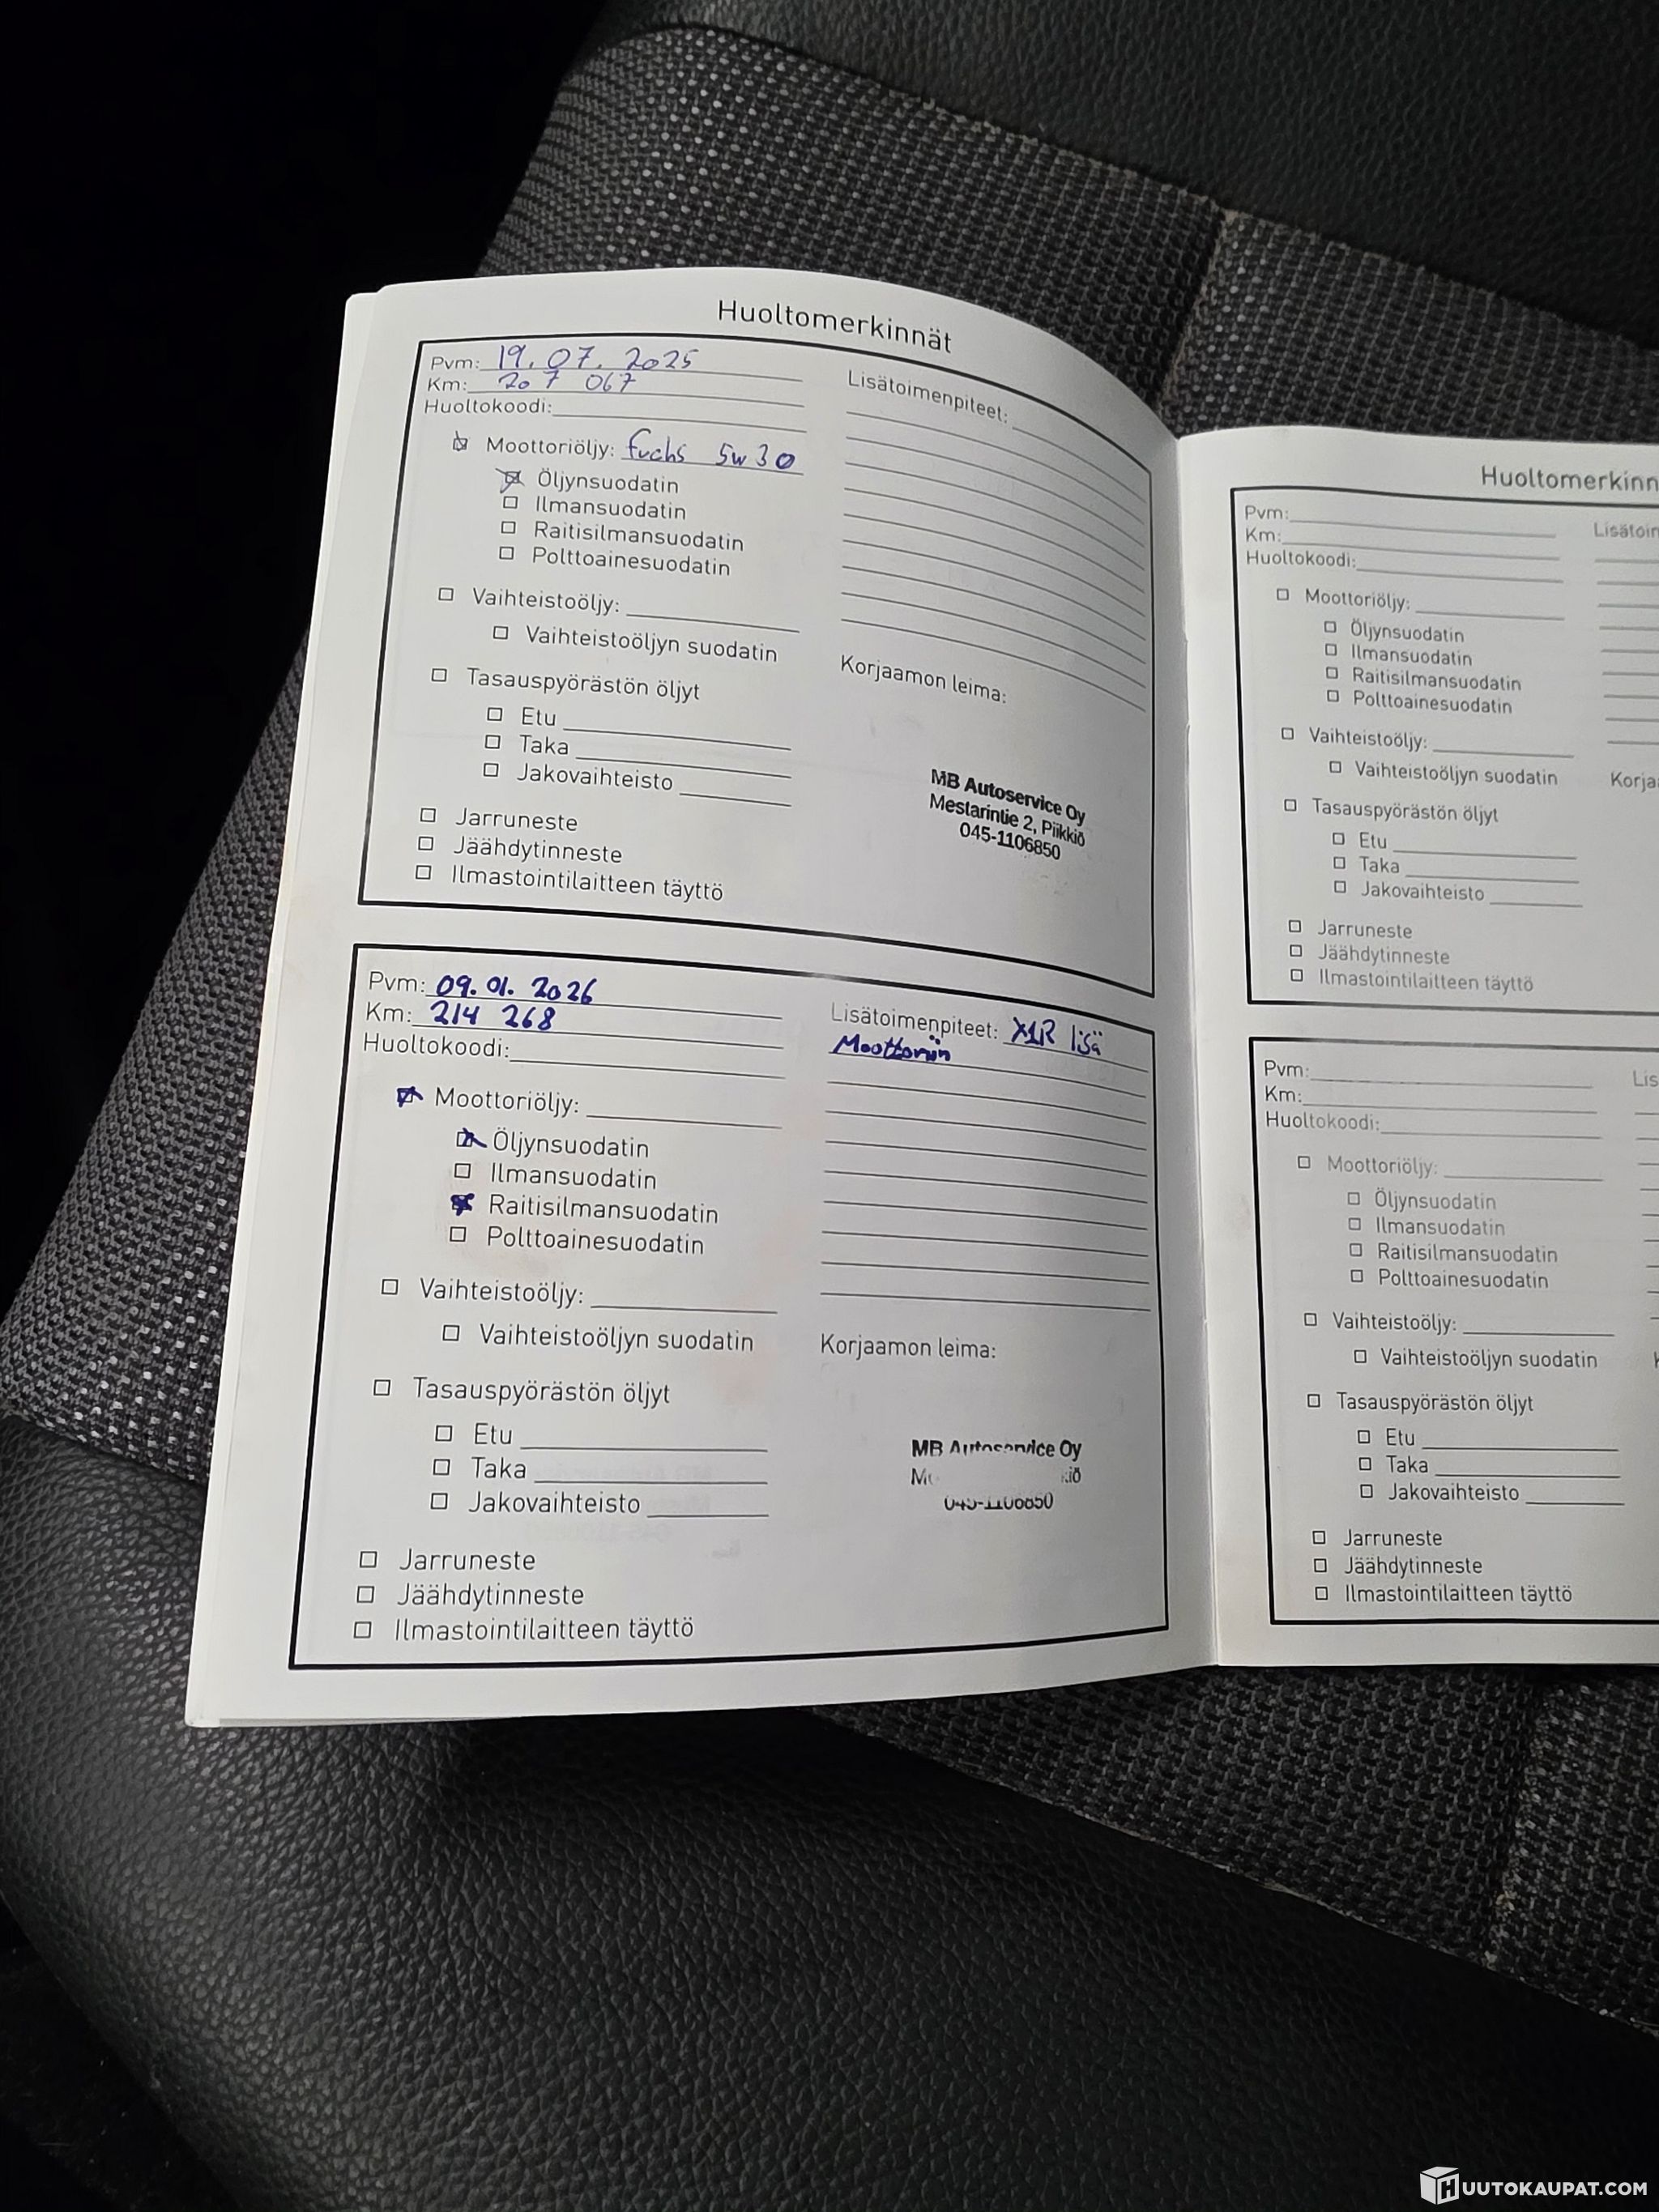 Huoltomerkinnät
Pvm: 19.07.2025
Km: 207 067
Huoltokoodi:
Moottoriöljy: fuchs 5w30
Öljynsuodatin
Ilmansuodatin
Raitisilmansuodatin
Polttoainesuodatin
Vaihteistoöljy:
Vaihteistoöljyn suodatin
Tasauspyörästön öljyt
Etu
Taka
Jakovaihteisto
Jarruneste
Jäähdytinneste
Ilmastointilaitteen täyttö
Lisätoimenpiteet:
Korjaamon leima:
MB Autoservice Oy
Mestarintie 2, Piikkiö
045-1106850
Pvm: 09.01.2026
Km: 214 268
Huoltokoodi:
Moottoriöljy:
Öljynsuodatin
Ilmansuodatin
Raitisilmansuodatin
Polttoainesuodatin
Vaihteistoöljy:
Vaihteistoöljyn suodatin
Tasauspyörästön öljyt
Etu
Taka
Jakovaihteisto
Jarruneste
Jäähdytinneste
Ilmastointilaitteen täyttö
Lisätoimenpiteet: X1R lisä
Moottoriin
Korjaamon leima:
MB Autoservice Oy
045-1106850
Huoltomerkinn
Pvm:
Km:
Huoltokoodi:
Moottoriöljy:
Öljynsuodatin
Ilmansuodatin
Raitisilmansuodatin
Polttoainesuodatin
Vaihteistoöljy:
Vaihteistoöljyn suodatin
Tasauspyörästön öljyt
Etu
Taka
Jakovaihteisto
Jarruneste
Jäähdytinneste
Ilmastointilaitteen täyttö
Lisätoim
Korja
Pvm:
Km:
Huoltokoodi:
Moottoriöljy:
Öljynsuodatin
Ilmansuodatin
Raitisilmansuodatin
Polttoainesuodatin
Vaihteistoöljy:
Vaihteistoöljyn suodatin
Tasauspyörästön öljyt
Etu
Taka
Jakovaihteisto
Jarruneste
Jäähdytinneste
Ilmastointilaitteen täyttö
Lis
HUUTOKAUPAT.COM